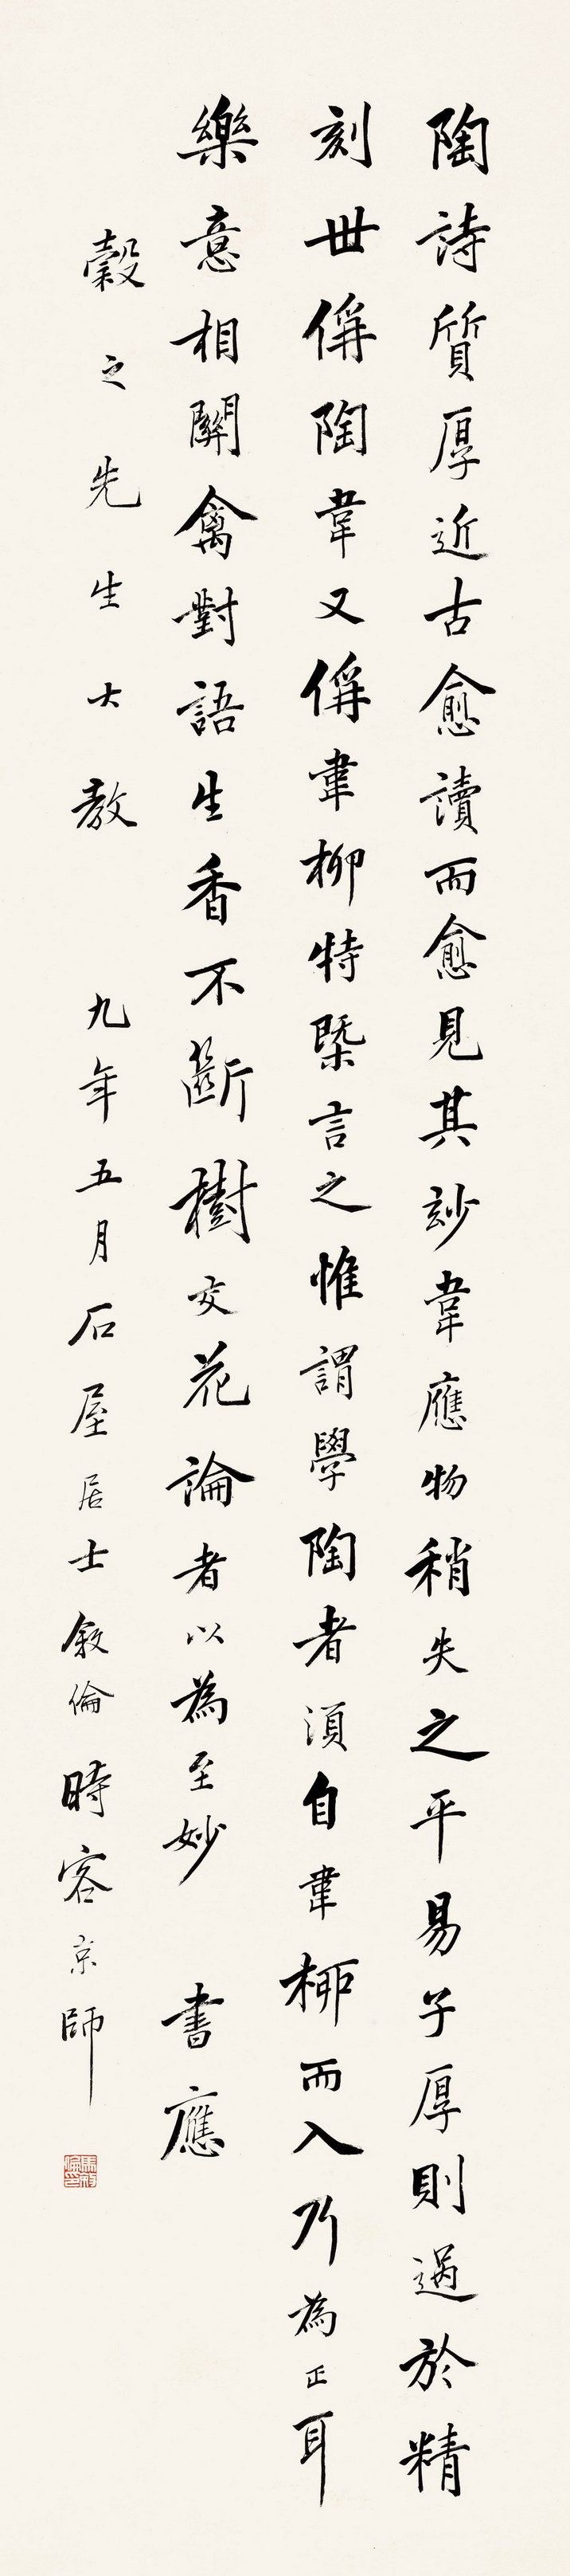 陶詩質厚近古愈讀而愈見其玅韋應物稍失之平易子厚則過於精
刻世偁陶韋又偁韋柳特槩言之惟謂學陶者須自韋柳而入乃為正耳
樂意相關禽對語生香不斷樹交花論者以為至妙　書應
穀之先生大教　九年五月石屋居士敘倫時客京師
馬敘倫印